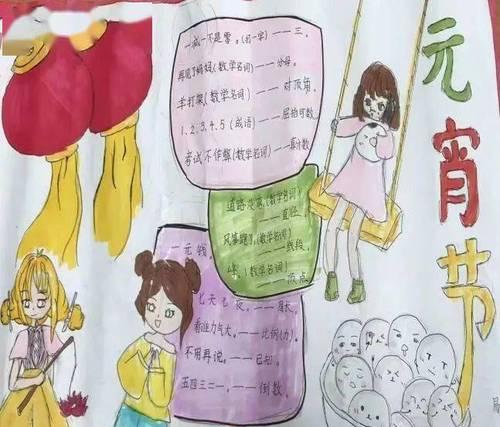 元宵节
一减一不是零。(打一字)——三。
再见了妈妈(数学名词)——分母。
羊打架(数学名词)——对顶角。
1、2、3、4、5(成语)——屈指可数
考试不作弊(数学名词)——真分数
道路没弯(数学名词)
——直径
风筝跑了。(数学名词)
——线段。
(数学名词)
一元钱。
七天七夜。——周长。
看谁力气大。——比例(力)。
不用再说。——已知。
五四三二一。——倒数。